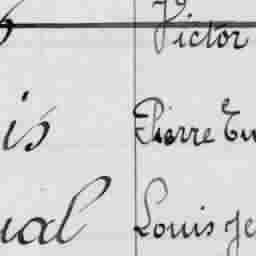 Victor
is Pierre Eu
ual Louis Je